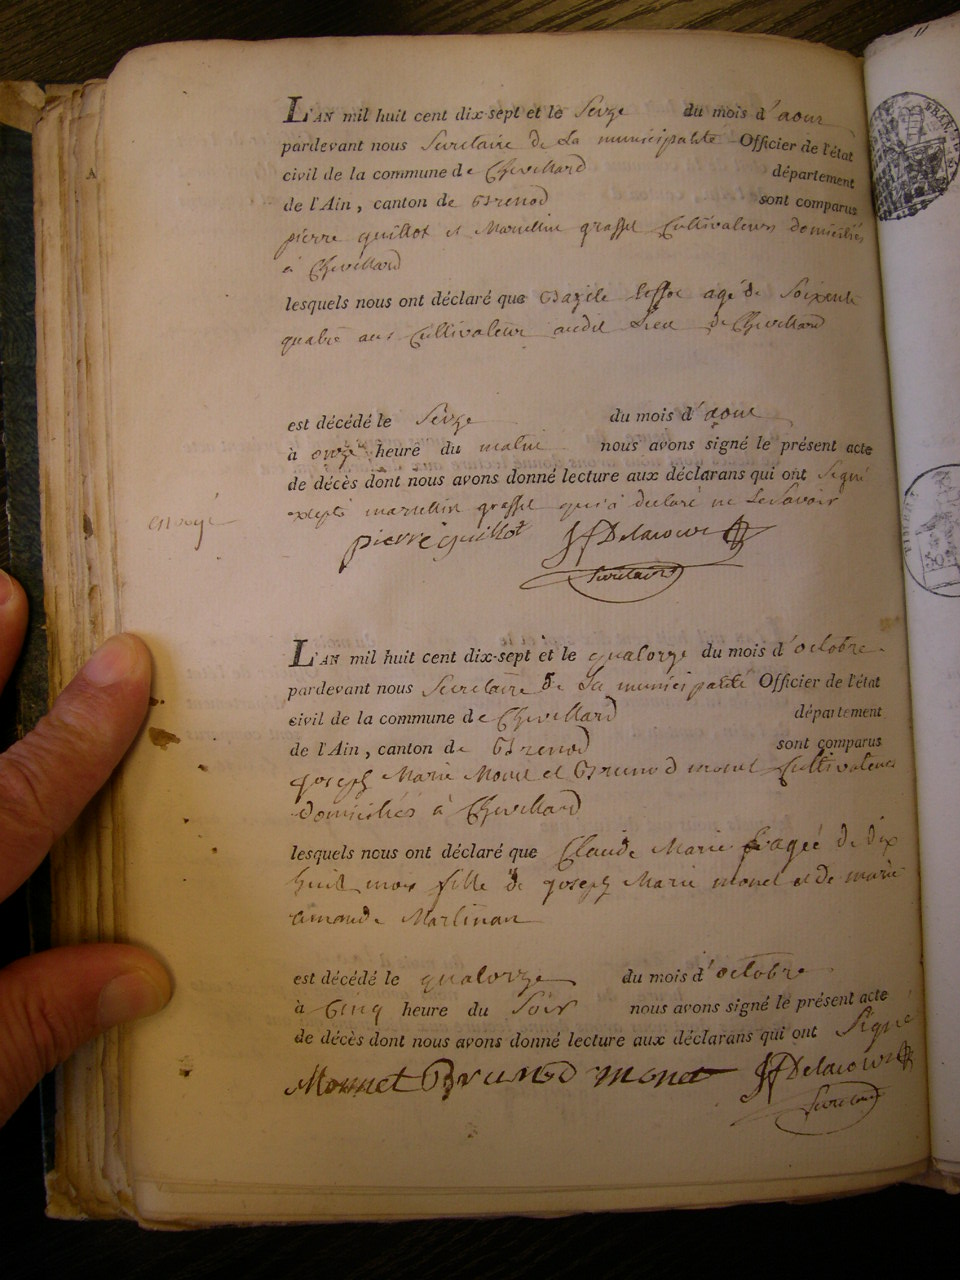 L'AN mil huit cent dix-sept et le Seize du mois d'aout
pardevant nous Secretaire de La municipalité Officier de l'état
civil de la commune de Chevillard département
de l'Ain, canton de Brenod sont comparus
pierre guillot et Marcellin graffet Cultivateurs domiciliés
à Chevillard
lesquels nous ont déclaré que Bazile agé de Soixante
quatre ans Cultivateur audit Lieu de Chevillard
est décédé le Seize du mois d'aout
à onze heure du matin nous avons signé le présent acte
de décès dont nous avons donné lecture aux déclarans qui ont Signé
excepté marcellin graffet qui a declaré ne Le Savoir
pierre guillot JF Delacour
Secretaire
L'AN mil huit cent dix-sept et le quatorze du mois d'octobre
pardevant nous Secretaire de La municipalité Officier de l'état
civil de la commune de Chevillard département
de l'Ain, canton de Brenod sont comparus
joseph Marie Monet et Brunod monet Cultivateurs
domiciliés à Chevillard
lesquels nous ont déclaré que Claude Marie agée de dix
huit mois fille de joseph Marie monet et de marie
Martinan
est décédé le quatorze du mois d'octobre
à Cinq heure du Soir nous avons signé le présent acte
de décès dont nous avons donné lecture aux déclarans qui ont Signé
Monnet Brunod monet JF Delacour
Secretaire